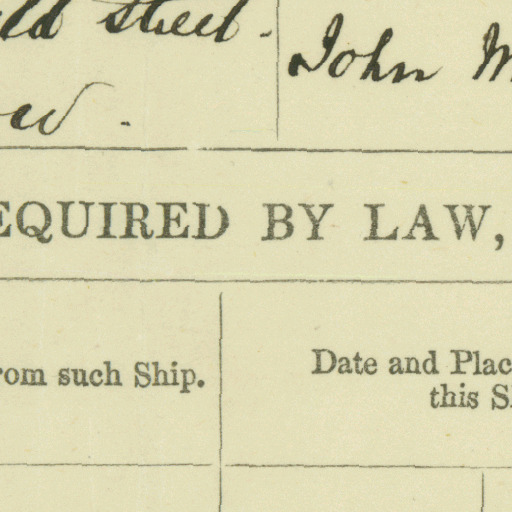 street.
John
EQUIRED BY LAW,
rom such Ship.
Date and Plac
this S